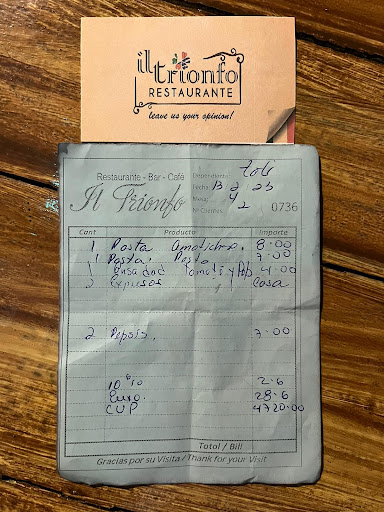 il trionfo
RESTAURANTE
leave us your opinion!
Restaurante - Bar - Café
Il Trionfo
Dependiente:
Fecha: 13 2 23
Mesa: 4
Nº Clientes: 2
0736
Cant Producto Importe
1 Pasta 8.00
1 Pasta Pesto 7.00
1 Ensalad Tomate y Pep 4.00
2 Expresos Casa
2 Pepsis. 7.00
10 % 2.6
Euro. 28.6
CUP 4720.00
Total / Bill
Gracias por su Visita / Thank for your Visit